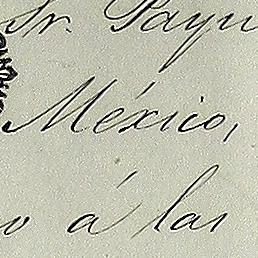 Sr. Payn
México,
o á las